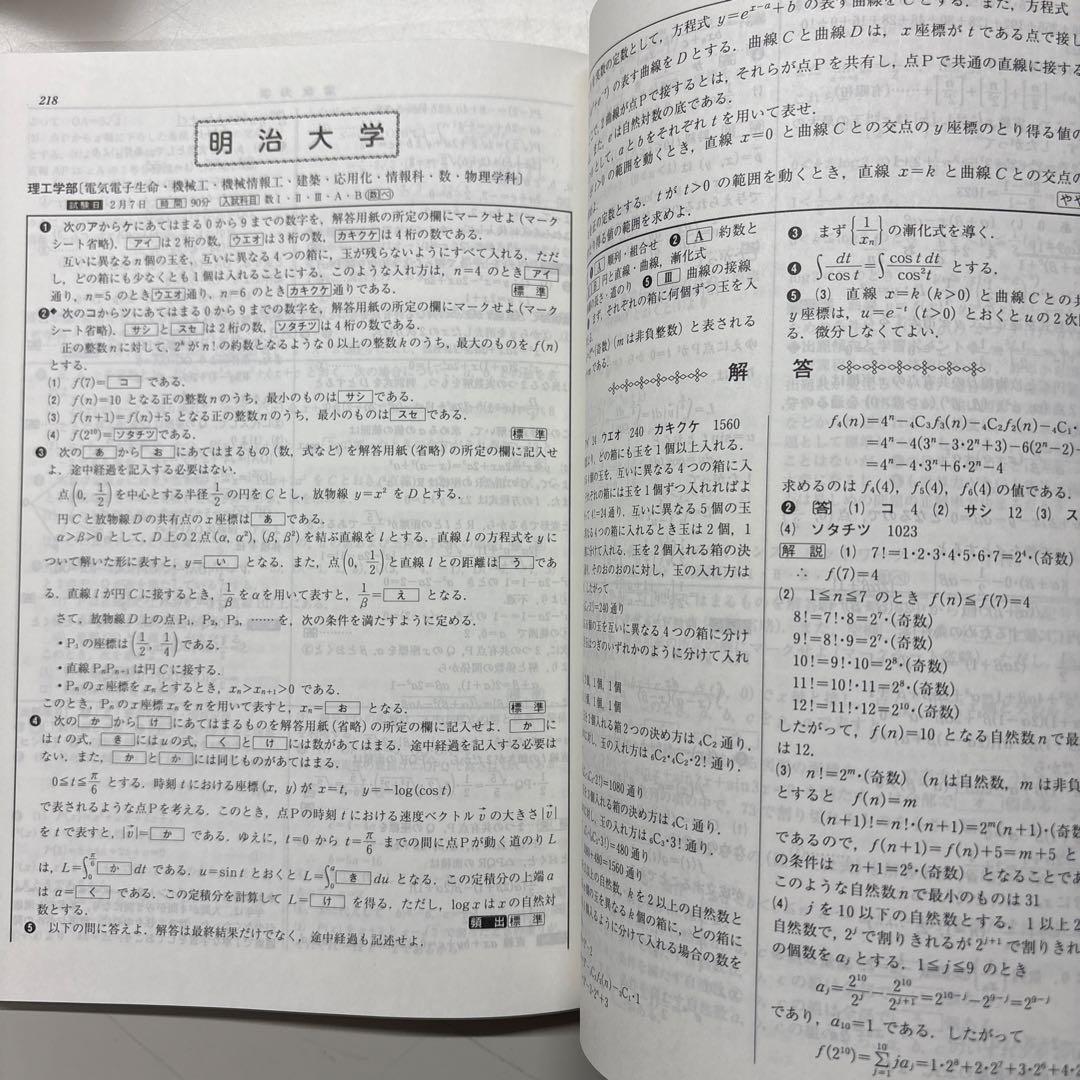 218
明治大学
理工学部〔電気電子生命・機械工・機械情報工・建築・応用化・情報科・数・物理学科〕
試験日 2月7日 時間 90分 入試科目 数Ⅰ・Ⅱ・Ⅲ・A・B(数ベ)
❶ 次のアからケにあてはまる0から9までの数字を,解答用紙の所定の欄にマークせよ(マーク
シート省略).アイは2桁の数,ウエオは3桁の数,カキクケは4桁の数である.
互いに異なるn個の玉を,互いに異なる4つの箱に,玉が残らないようにすべて入れる.ただ
し,どの箱にも少なくとも1個は入れることにする.このような入れ方は,n=4のときアイ
通り,n=5のときウエオ通り,n=6のときカキクケ通りである. 標準
❷◆ 次のコからツにあてはまる0から9までの数字を,解答用紙の所定の欄にマークせよ(マーク
シート省略).サシとスセは2桁の数,ソタチツは4桁の数である.
正の整数nに対して,2^kがn!の約数となるような0以上の整数kのうち,最大のものをf(n)
とする.
(1) f(7)=コである.
(2) f(n)=10となる正の整数nのうち,最小のものはサシである.
(3) f(n+1)=f(n)+5となる正の整数nのうち,最小のものはスセである.
(4) f(2^10)=ソタチツである. 標準
❸ 次のあからおにあてはまるもの(数,式など)を解答用紙(省略)の所定の欄に記入せ
よ.途中経過を記入する必要はない.
点(0, 1/2)を中心とする半径1/2の円をCとし,放物線y=x²をDとする.
円Cと放物線Dの共有点のx座標はあである.
α>β>0として,D上の2点(α, α²), (β, β²)を結ぶ直線をlとする.直線lの方程式をyに
ついて解いた形に表すと,y=いとなる.また,点(0, 1/2)と直線lとの距離はうであ
る.直線lが円Cに接するとき,1/βをαを用いて表すと,1/β=えとなる.
さて,放物線D上の点P₁, P₂, P₃, ……を,次の条件を満たすように定める.
・P₃の座標は(1/2, 1/4)である.
・直線PₙPₙ₊₁は円Cに接する.
・Pₙのx座標をxₙとするとき,xₙ>xₙ₊₁>0である.
このとき,Pₙのx座標xₙをnを用いて表すと,xₙ=おとなる. 標準
❹ 次のかからけにあてはまるものを解答用紙(省略)の所定の欄に記入せよ.かに
はtの式,きにはuの式,くとけには数があてはまる.途中経過を記入する必要は
ない.また,かとかには同じものがあてはまる.
0≦t≦π/6とする.時刻tにおける座標(x, y)が x=t, y=−log(cos t)
で表されるような点Pを考える.このとき,点Pの時刻tにおける速度ベクトルv⃗の大きさ|v⃗|
をtで表すと,|v⃗|=かである.ゆえに,t=0からt=π/6までの間に点Pが動く道のりL
は,L=∫₀^(π/6) か dtである.u=sin tとおくとL=∫₀^a き duとなる.この定積分の上端a
はa=くである.この定積分を計算してL=けを得る.ただし,log xはxの自然対
数とする. 頻出 標準
❺ 以下の問に答えよ.解答は最終結果だけでなく,途中経過も記述せよ.
実数の定数として,方程式y=e^(x−a)+bの表す曲線をCとする.また,方程式
の表す曲線をDとする.曲線Cと曲線Dは,x座標がtである点で接し
曲線が点Pで接するとは,それらが点Pを共有し,点Pで共通の直線に接する
また,eは自然対数の底である.
として,aとbをそれぞれtを用いて表せ.
の範囲を動くとき,直線x=0と曲線Cとの交点のy座標のとり得る値の
定数とする.tがt>0の範囲を動くとき,直線x=kと曲線Cとの交点の
得る値の範囲を求めよ. やや
A 順列・組合せ ❷ A 約数と
円と直線・曲線,漸化式
・道のり ❺ Ⅲ 曲線の接線
まず,それぞれの箱に何個ずつ玉を入
(奇数)(mは非負整数)と表される
である.
❸ まず{1/xₙ}の漸化式を導く.
❹ ∫dt/cos t=∫cos t dt/cos²t とする.
❺ (3) 直線x=k(k>0)と曲線Cとの共
y座標は,u=e^(−t)(t>0)とおくとuの2次関
る.微分しなくてよい.
解答
24 ウエオ 240 カキクケ 1560
より,どの箱にも玉を1個以上入れる.
4個の玉を,互いに異なる4つの箱に入
それぞれの箱には玉を1個ずつ入れればよ
4!=24通り,互いに異なる5個の玉
る4つの箱に入れるとき玉は2個,1
に分けて入れる.玉を2個入れる箱の決
り,そのおのおのに対し,玉の入れ方は
したがって
=240通り
の玉を互いに異なる4つの箱に分け
はつぎのいずれかのように分けて入れ
1個,1個
個入れる箱2つの決め方は₄C₂通り.
に対し,玉の入れ方は₆C₂・₄C₂・2!通り.
=1080通り
3個入れる箱の決め方は₄C₁通り.
対し,玉の入れ方は₆C₃・3!通り.
=480通り
+480=1560通り
上の自然数,kを2以上の自然数と
の玉を異なるk個の箱に,どの箱に
入るように分けて入れる場合の数を
f₄(n)=4ⁿ−₄C₃f₃(n)−₄C₂f₂(n)−₄C₁・
=4ⁿ−4(3ⁿ−3・2ⁿ+3)−6(2ⁿ−2)−
=4ⁿ−4・3ⁿ+6・2ⁿ−4
求めるのはf₄(4), f₅(4), f₆(4)の値である.
❷〔答〕(1) コ 4 (2) サシ 12 (3) ス
(4) ソタチツ 1023
解説 (1) 7!=1・2・3・4・5・6・7=2⁴・(奇数)
∴ f(7)=4
(2) 1≦n≦7のとき f(n)≦f(7)=4
8!=7!・8=2⁷・(奇数)
9!=8!・9=2⁷・(奇数)
10!=9!・10=2⁸・(奇数)
11!=10!・11=2⁸・(奇数)
12!=11!・12=2¹⁰・(奇数)
したがって,f(n)=10となる自然数nで最
は12.
(3) n!=2^m・(奇数) (nは自然数,mは非負
とすると f(n)=m
(n+1)!=n!・(n+1)=2^m(n+1)・(奇数
であるので,f(n+1)=f(n)+5=m+5と
の条件は n+1=2⁵・(奇数)となることであ
このような自然数nで最小のものは31
(4) jを10以下の自然数とする.1以上2
自然数で,2^jで割りきれるが2^(j+1)で割りきれ
の個数をaⱼとする.1≦j≦9のとき
aⱼ=2¹⁰/2^j−2¹⁰/2^(j+1)=2^(10−j)−2^(9−j)=2^(9−j)
であり,a₁₀=1である.したがって
f(2¹⁰)=Σ_(j=1)^10 jaⱼ=1・2⁸+2・2⁷+3・2⁶+4・2